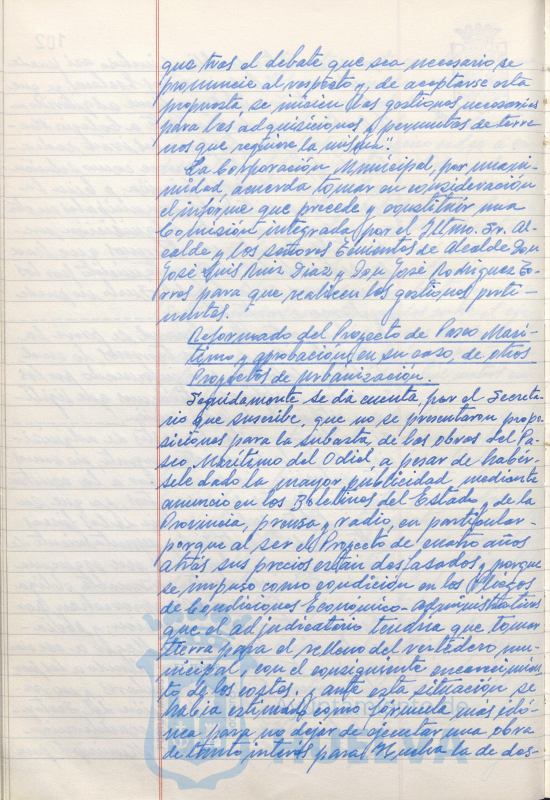 que tras el debate que sea necesario se
pronuncie al respecto y, de aceptarse esta
propuesta, se inicien las gestiones necesarias
para las adquisiciones y permutas de terre-
nos que requiere la misma".
La Corporación Municipal, por unani-
midad, acuerda tomar en consideración
el informe que precede y constituir una
Comisión integrada por el Iltmo. Sr. Al-
calde y los señores Tenientes de Alcalde Don
José Luis Ruiz Díaz y Don José Rodríguez To-
rres para que realicen las gestiones perti-
nentes.
Reformado del Proyecto de Paseo Marí-
timo y aprobación, en su caso, de otros
Proyectos de urbanización.
Seguidamente se dá cuenta, por el Secreta-
rio que suscribe, que no se presentaron propo-
siciones para la subasta de las obras del Pa-
seo Marítimo del Odiel, a pesar de habér-
sele dado la mayor publicidad, mediante
anuncio en los Boletines del Estado y de la
Provincia, prensa y radio, en particular
porque al ser el Proyecto de cuatro años
atrás sus precios están desfasados y porque
se impuso como condición en los Pliegos
de Condiciones Económico-administrativas
que el adjudicatario tendría que tomar
tierra para el relleno del vertedero mu-
nicipal, con el consiguiente encarecimien-
to de los costos. y ante esta situación se
había estimado como fórmula más idó-
nea para no dejar de ejecutar una obra
de tanto interés para Huelva la de des-